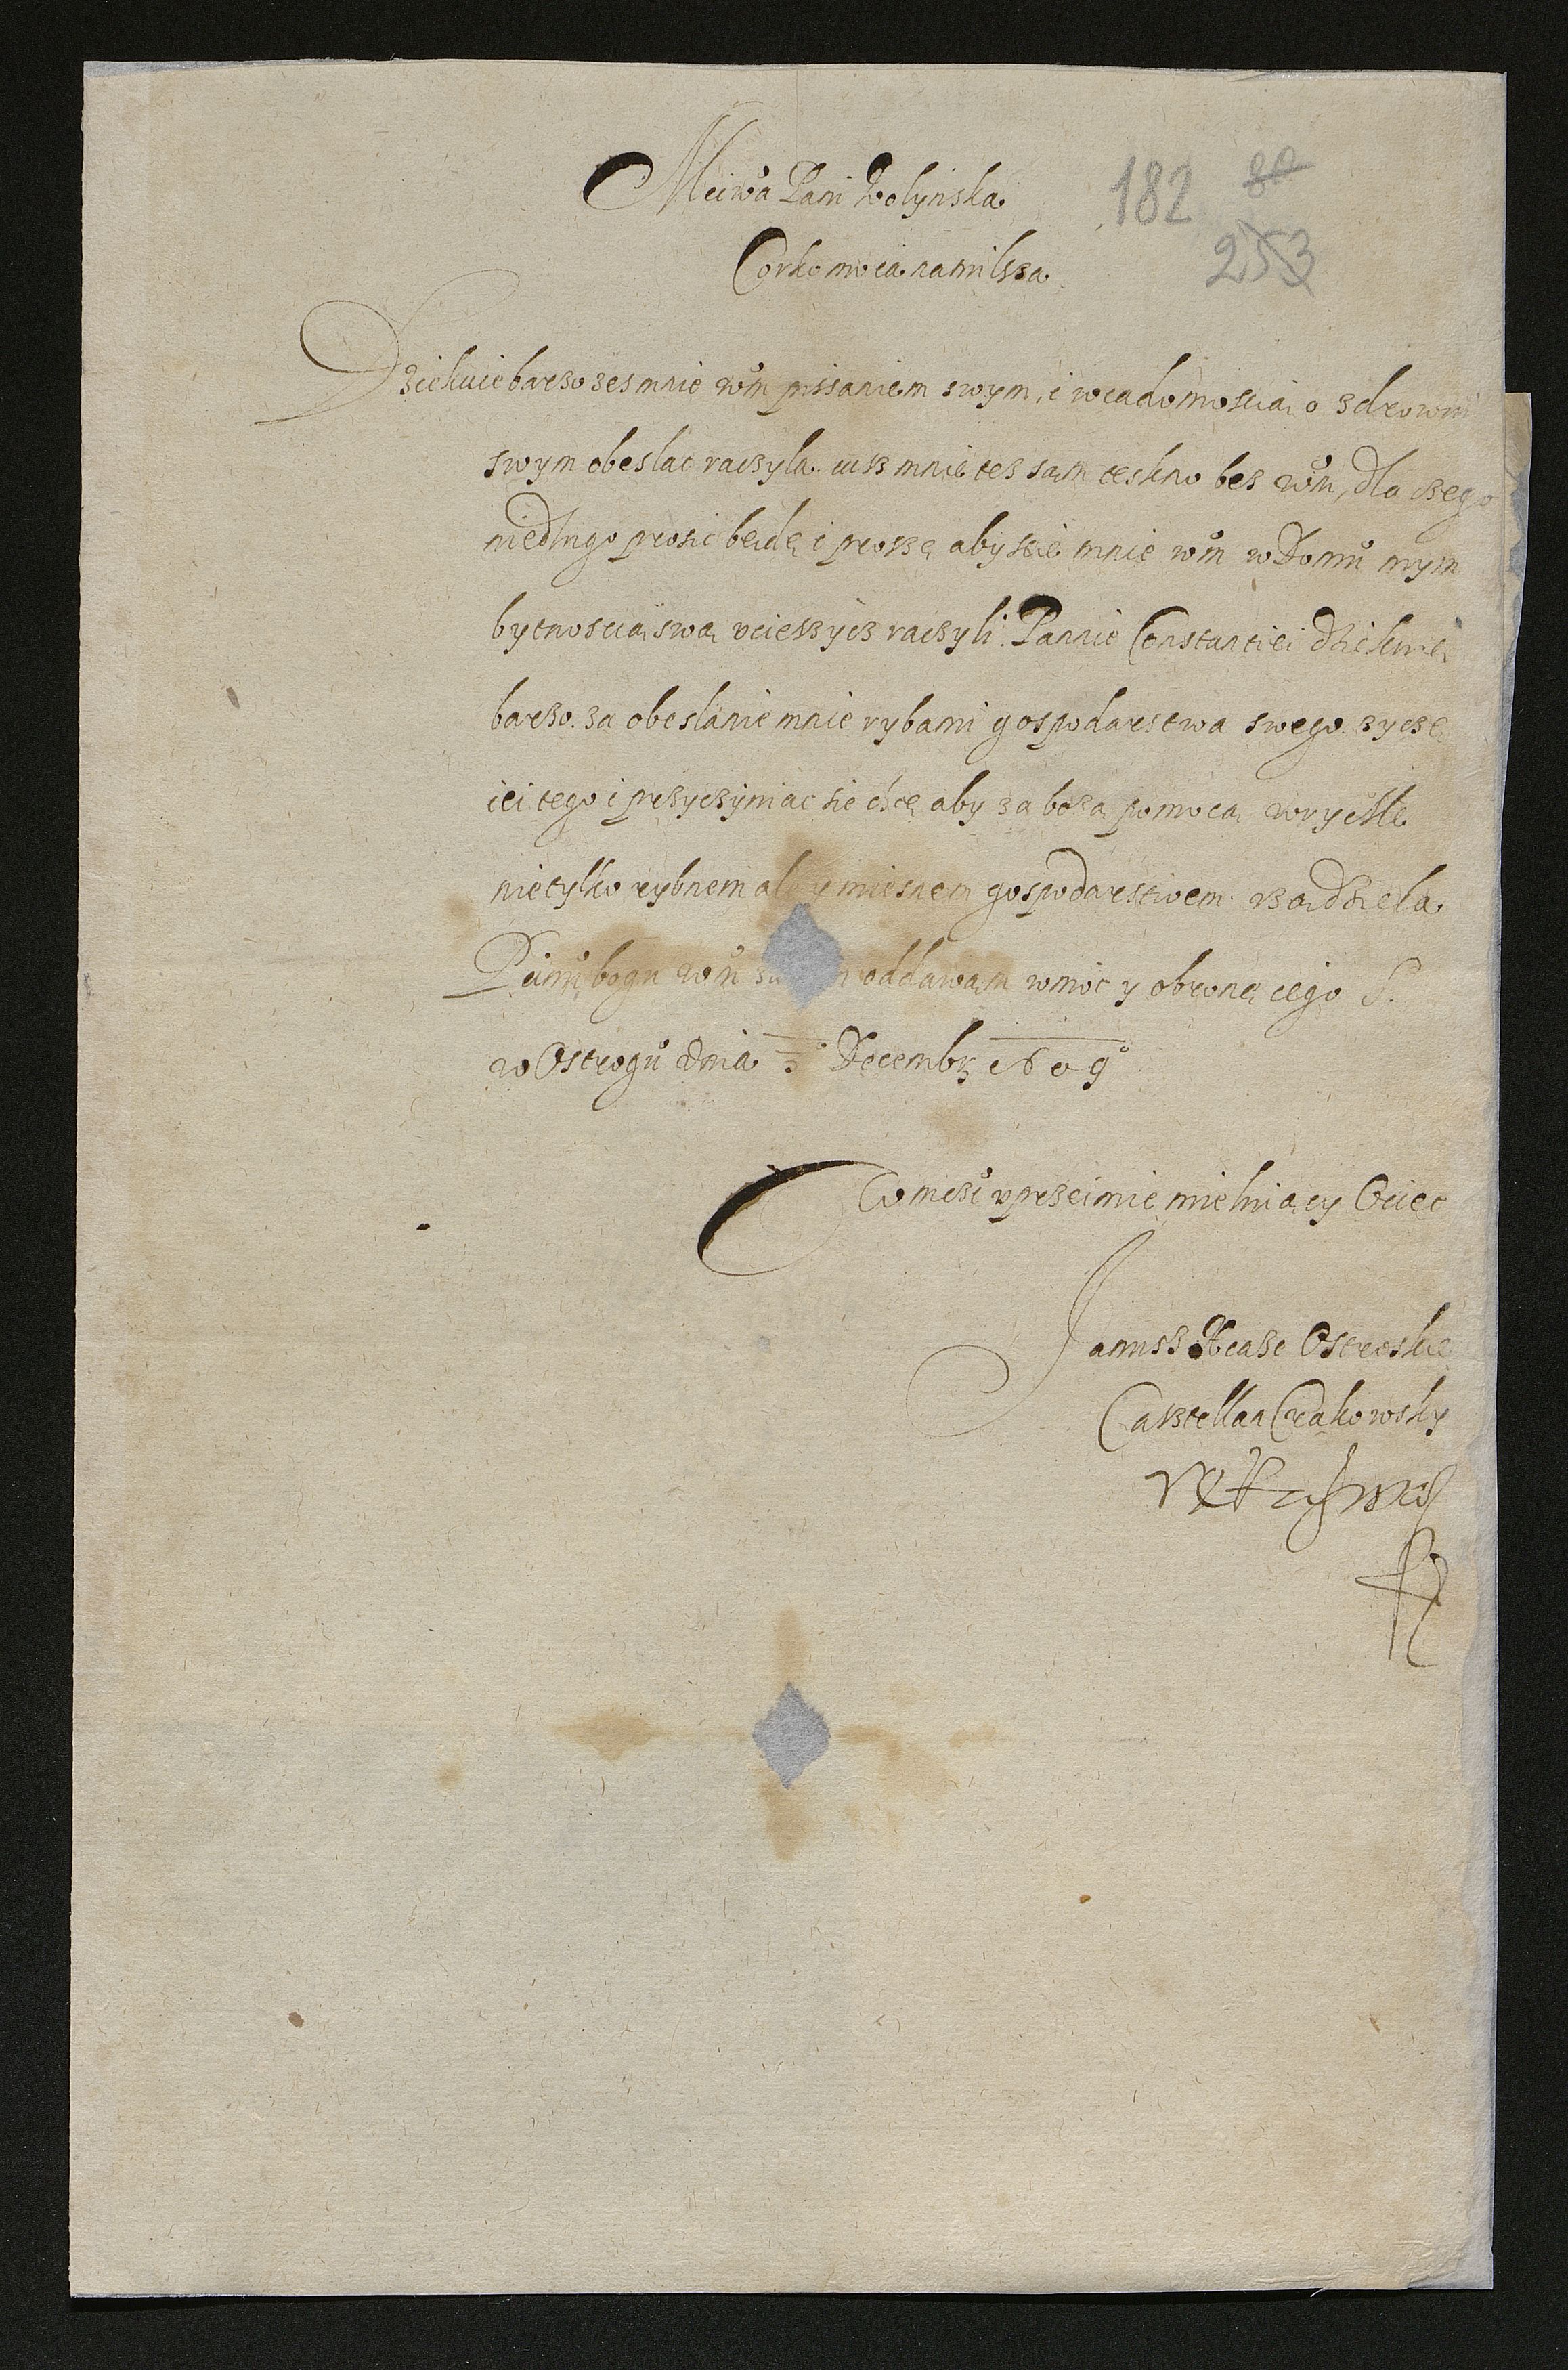 Mciwa Pani Wolynska
182
80
Corko moia namilsza
253
Dziekuie barzo zes mnie wm pissaniem swym, i wiadomoscią o zdrowiu
swym obeslac raczyla. iusz mnie tez sam teskno bez wm, dla czego
niedlugo prosic będę i proszę abyscie mnie wm w Domu mym
bytnoscią swą vcieszycz raczyli. Pannie Constanciei dziekuię
barzo. za obeslanie mnie rybami gospodarstwa swego. zyczę
iei tego i przyczyniac sie chcę aby za bozą pomocą wrychle
nie tylko rybnem ale y miesnem gospodarstwem rządziela
Panu bogu wm oddawam w moc y obronę iego S.
w Ostrogu dnia 3 Decembr 1609
W mczi vprzeimie mieluiący Ociec
Janusz Xiąze Ostroskie
Casztellan Crakowsky
ręką swą